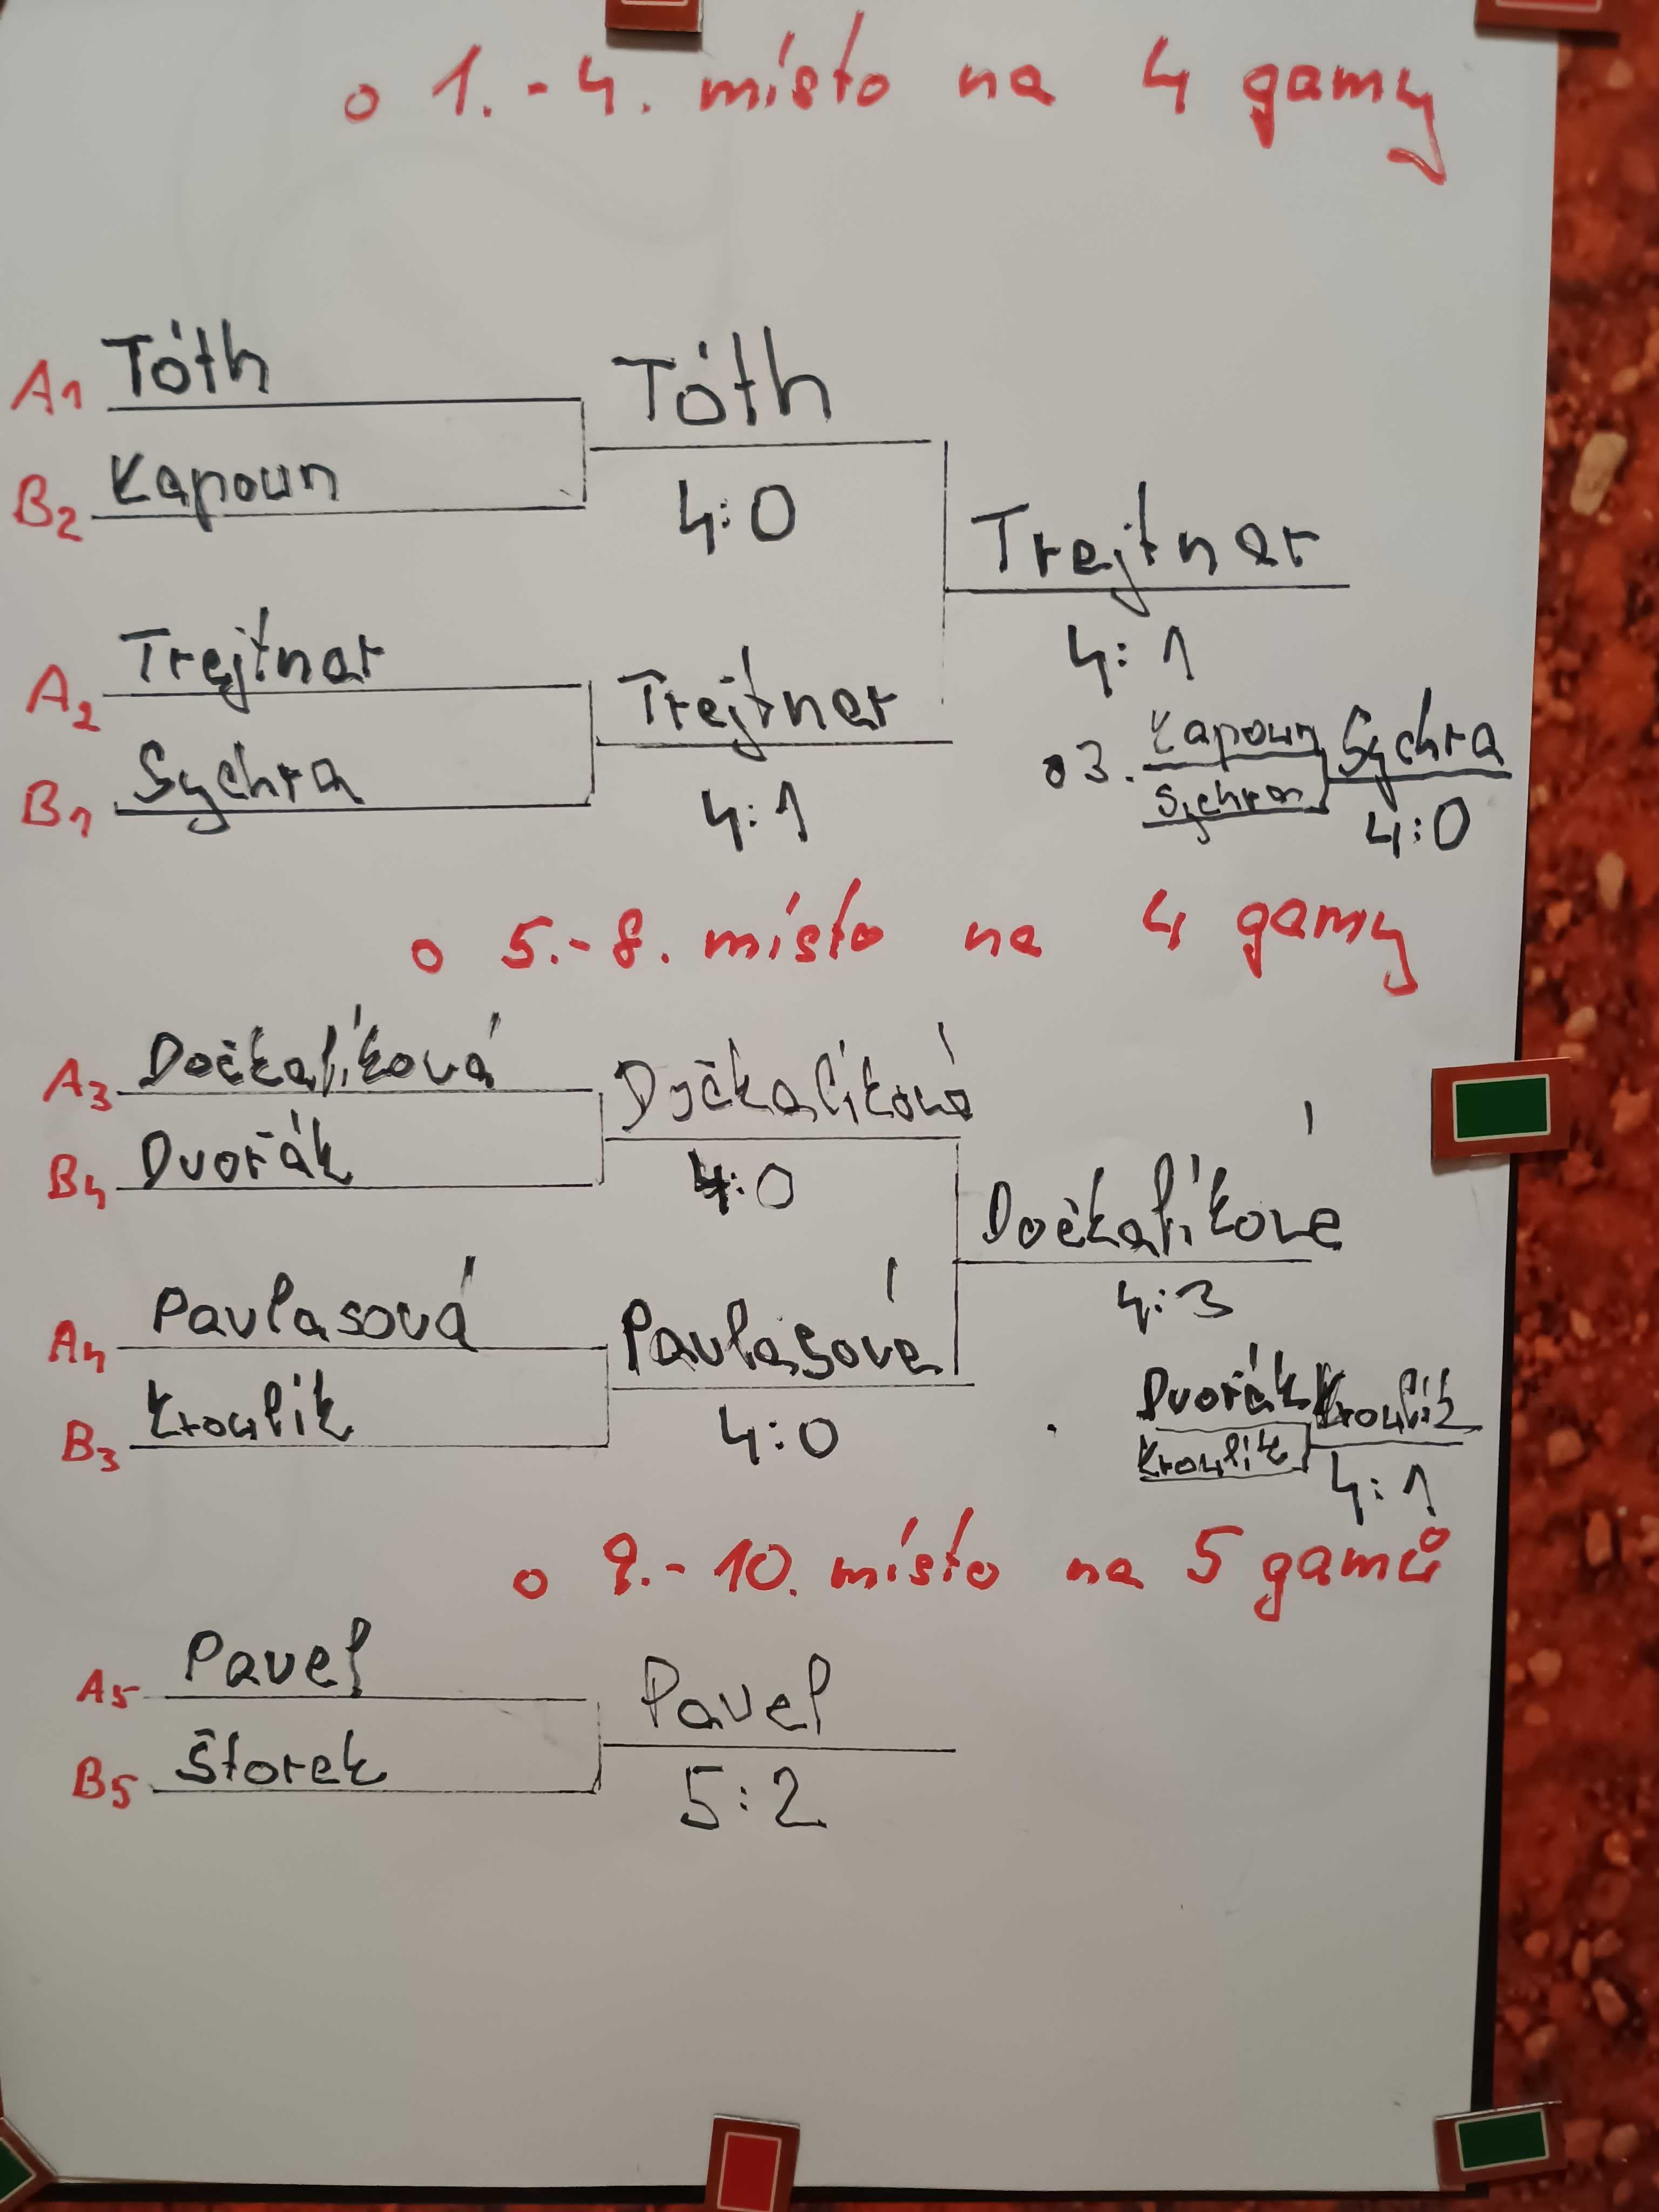 o 1.-4. místo na 4 gamy
A1 Tóth
B2 Kapoun
Tóth
4:0
A2 Trejtnar
B1 Sychra
Trejtnar
4:1
Trejtnar
4:1
o 3. Kapoun
Sychra
Sychra
4:0
o 5.-8. místo na 4 gamy
A3 Dočkalíková
B4 Dvořák
Dočkalíková
4:0
A4 Pavlasová
B3 Kroulík
Pavlasová
4:0
Dočkalíková
4:3
Dvořák
Kroulík
Kroulík
4:1
o 9.-10. místo na 5 gamů
A5 Pavel
B5 Štorek
Pavel
5:2